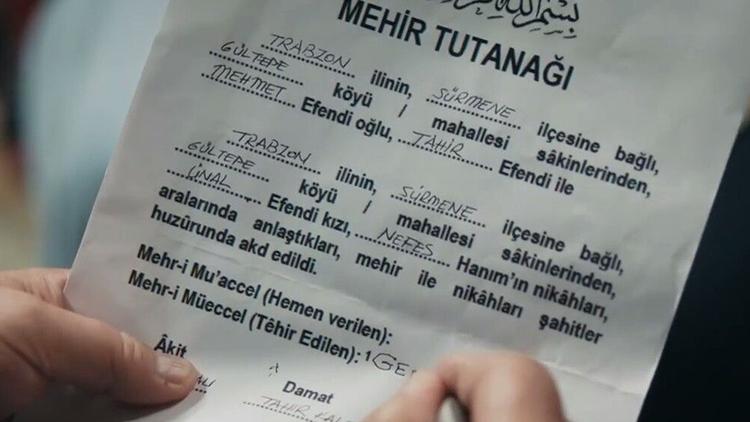 MEHİR TUTANAĞI
TRABZON ilinin, SÜRMENE ilçesine bağlı,
GÜLTEPE köyü / mahallesi sâkinlerinden,
MEHMET Efendi oğlu, TAHİR Efendi ile
TRABZON ilinin, SÜRMENE ilçesine bağlı,
GÜLTEPE köyü / mahallesi sâkinlerinden,
ÜNAL Efendi kızı, NEFES Hanım'ın nikâhları,
aralarında anlaştıkları, mehir ile nikâhları şahitler
huzûrunda akd edildi.
Mehr-i Mu'accel (Hemen verilen):
Mehr-i Müeccel (Têhir Edilen): 1 GE
Âkit Damat
TAHİR